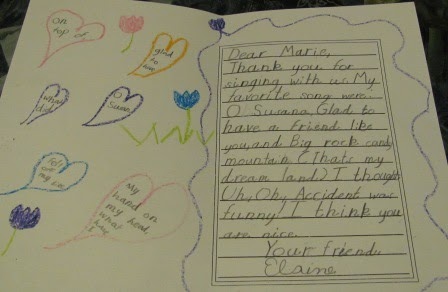 on
top of
glad
to have
what
did
O
Susana
fell
off
my ox
My
hand on
my head
what
have
I
Dear Marie,
Thank you for
singing with us. My
favorite song were
O Suzana, Glad to
have a friend like
you, and Big rock candy
mountain (Thats my
dream land.) I thought
Uh, Oh, Accident was
funny! I think you
are nice.
Your friend,
Elaine